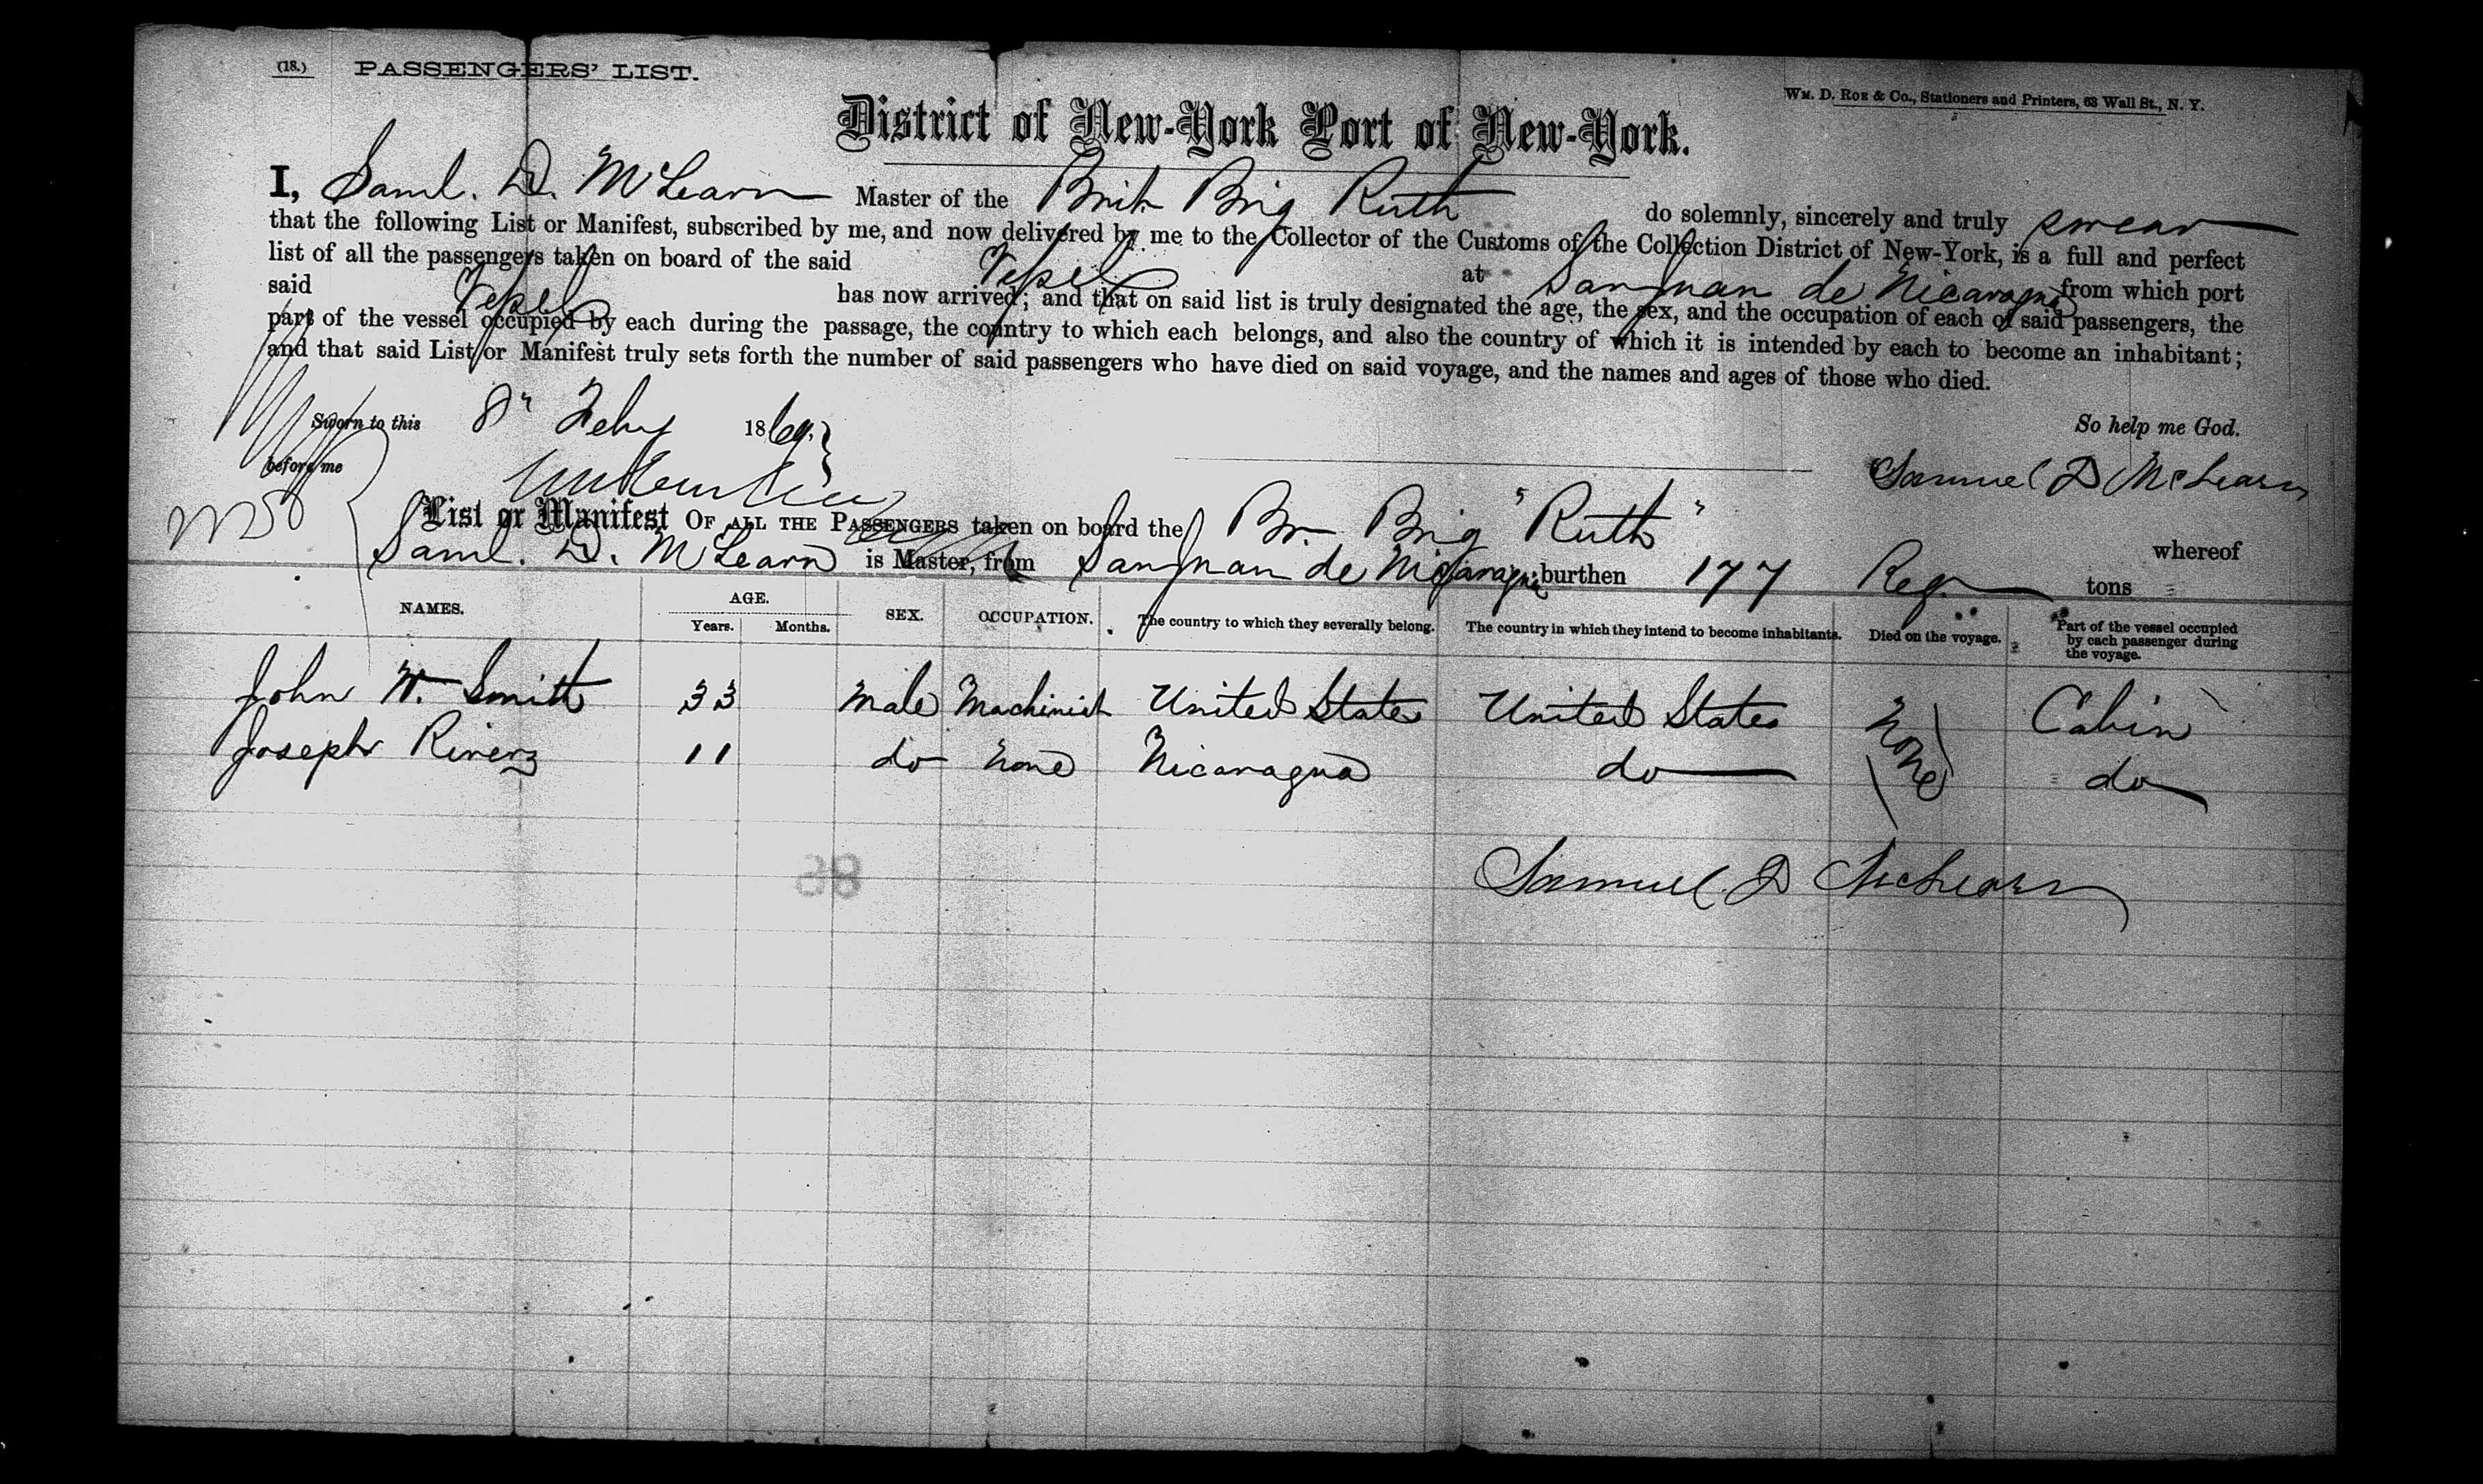 (18.) PASSENGERS' LIST.
Wm. D. Roe & Co., Stationers and Printers, 63 Wall St., N. Y.
District of New-York Port of New-York.
I, Saml. D. McLearn Master of the Brit. Brig Ruth do solemnly, sincerely and truly swear
that the following List or Manifest, subscribed by me, and now delivered by me to the Collector of the Customs of the Collection District of New-York, is a full and perfect
list of all the passengers taken on board of the said Vessel at San Juan de Nicaragua from which port
said Vessel has now arrived; and that on said list is truly designated the age, the sex, and the occupation of each of said passengers, the
part of the vessel occupied by each during the passage, the country to which each belongs, and also the country of which it is intended by each to become an inhabitant;
and that said List or Manifest truly sets forth the number of said passengers who have died on said voyage, and the names and ages of those who died.
So help me God.
Sworn to this 8" Feby 1869.
before me
Samuel D McLearn
List or Manifest OF ALL THE PASSENGERS taken on board the Br. Brig "Ruth" whereof
Saml. D. McLearn is Master, from San Juan de Nicaragua burthen 177 Reg. tons
NAMES. AGE. Years. Months. SEX. OCCUPATION. The country to which they severally belong. The country in which they intend to become inhabitants. Died on the voyage. Part of the vessel occupied by each passenger during the voyage.
John W. Smith 33 Male Machinist United States United States None Cabin
Joseph Riverz 11 do None Nicaragua do do
Samuel D McLearn